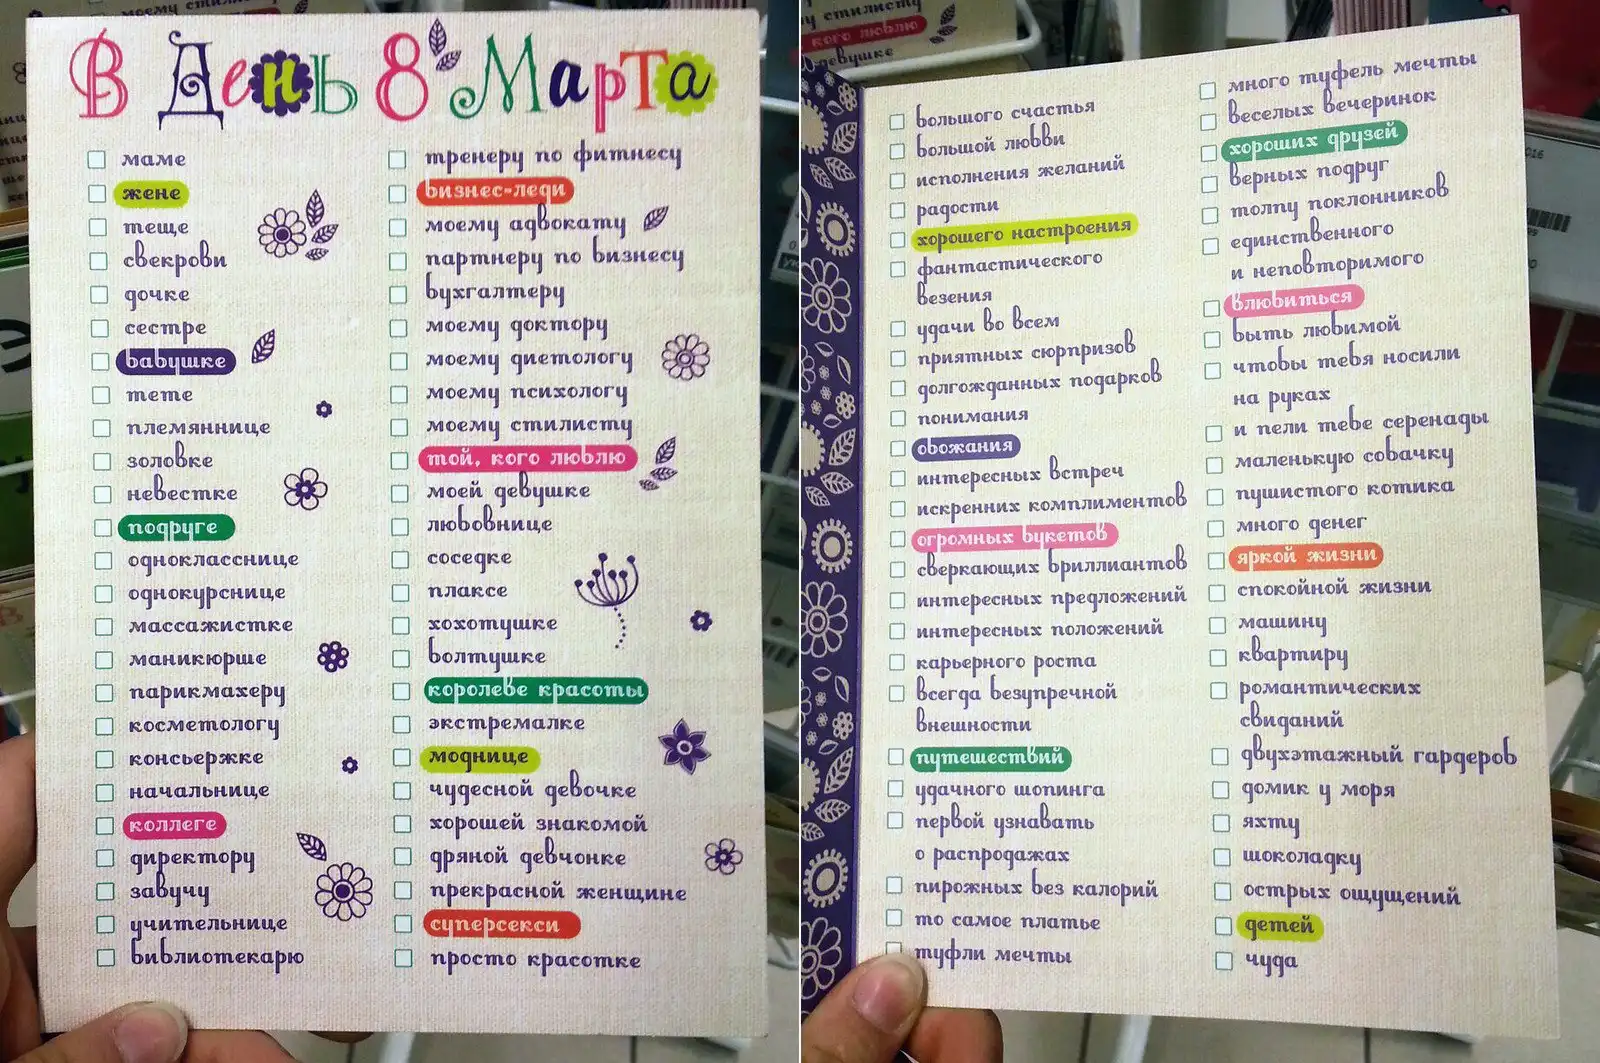 В День 8 Марта
маме
жене
теще
свекрови
дочке
сестре
бабушке
тете
племяннице
золовке
невестке
подруге
однокласснице
однокурснице
массажистке
маникюрше
парикмахеру
косметологу
консьержке
начальнице
коллеге
директору
завучу
учительнице
библиотекарю
тренеру по фитнесу
бизнес-леди
моему адвокату
партнеру по бизнесу
бухгалтеру
моему доктору
моему диетологу
моему психологу
моему стилисту
той, кого люблю
моей девушке
любовнице
соседке
плаксе
хохотушке
болтушке
королеве красоты
экстремалке
моднице
чудесной девочке
хорошей знакомой
дряной девчонке
прекрасной женщине
суперсекси
просто красотке
моему стилисту
кого люблю
девушке
большого счастья
большой любви
исполнения желаний
радости
хорошего настроения
фантастического
везения
удачи во всем
приятных сюрпризов
долгожданных подарков
понимания
обожания
интересных встреч
искренних комплиментов
огромных букетов
сверкающих бриллиантов
интересных предложений
интересных положений
карьерного роста
всегда безупречной
внешности
путешествий
удачного шопинга
первой узнавать
о распродажах
пирожных без калорий
то самое платье
туфли мечты
много туфель мечты
веселых вечеринок
хороших друзей
верных подруг
толпу поклонников
единственного
и неповторимого
влюбиться
быть любимой
чтобы тебя носили
на руках
и пели тебе серенады
маленькую собачку
пушистого котика
много денег
яркой жизни
спокойной жизни
машину
квартиру
романтических
свиданий
двухэтажный гардероб
домик у моря
яхту
шоколадку
острых ощущений
детей
чуда